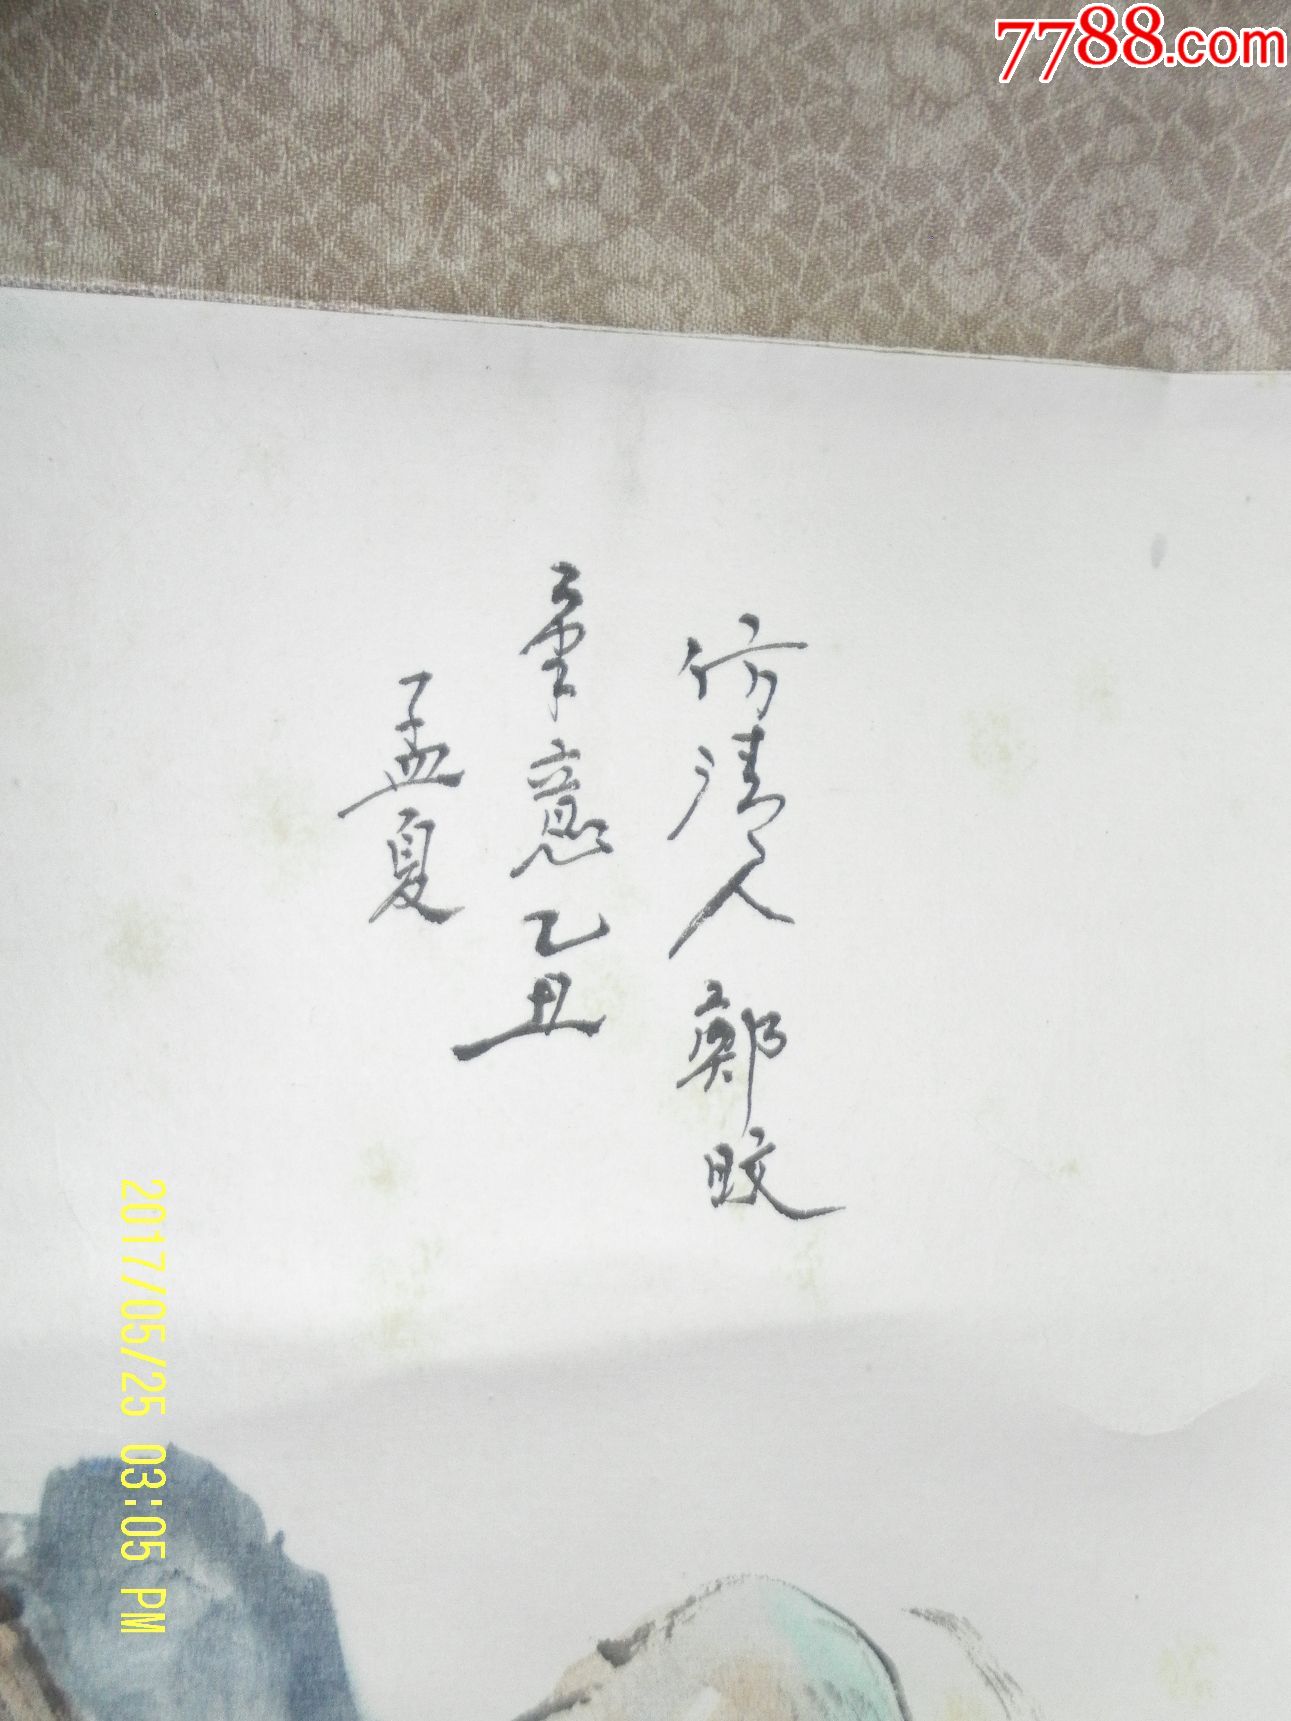 7788.com
仿清人鄭旼
筆意乙丑
孟夏
2017/05/25 03:05 PM